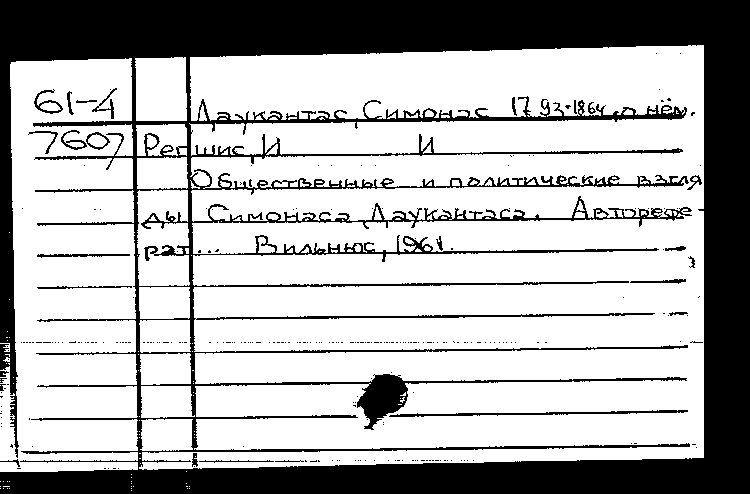 61-4 Даукантас, Симонас 1793-1864, о нём.
7607 Репшис, И И
Общественные и политические взгля
ды Симонаса Даукантаса. Авторефе-
рат... Вильнюс, 1961.